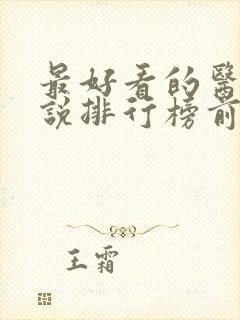 最好看的醫
說排行榜前
王霜